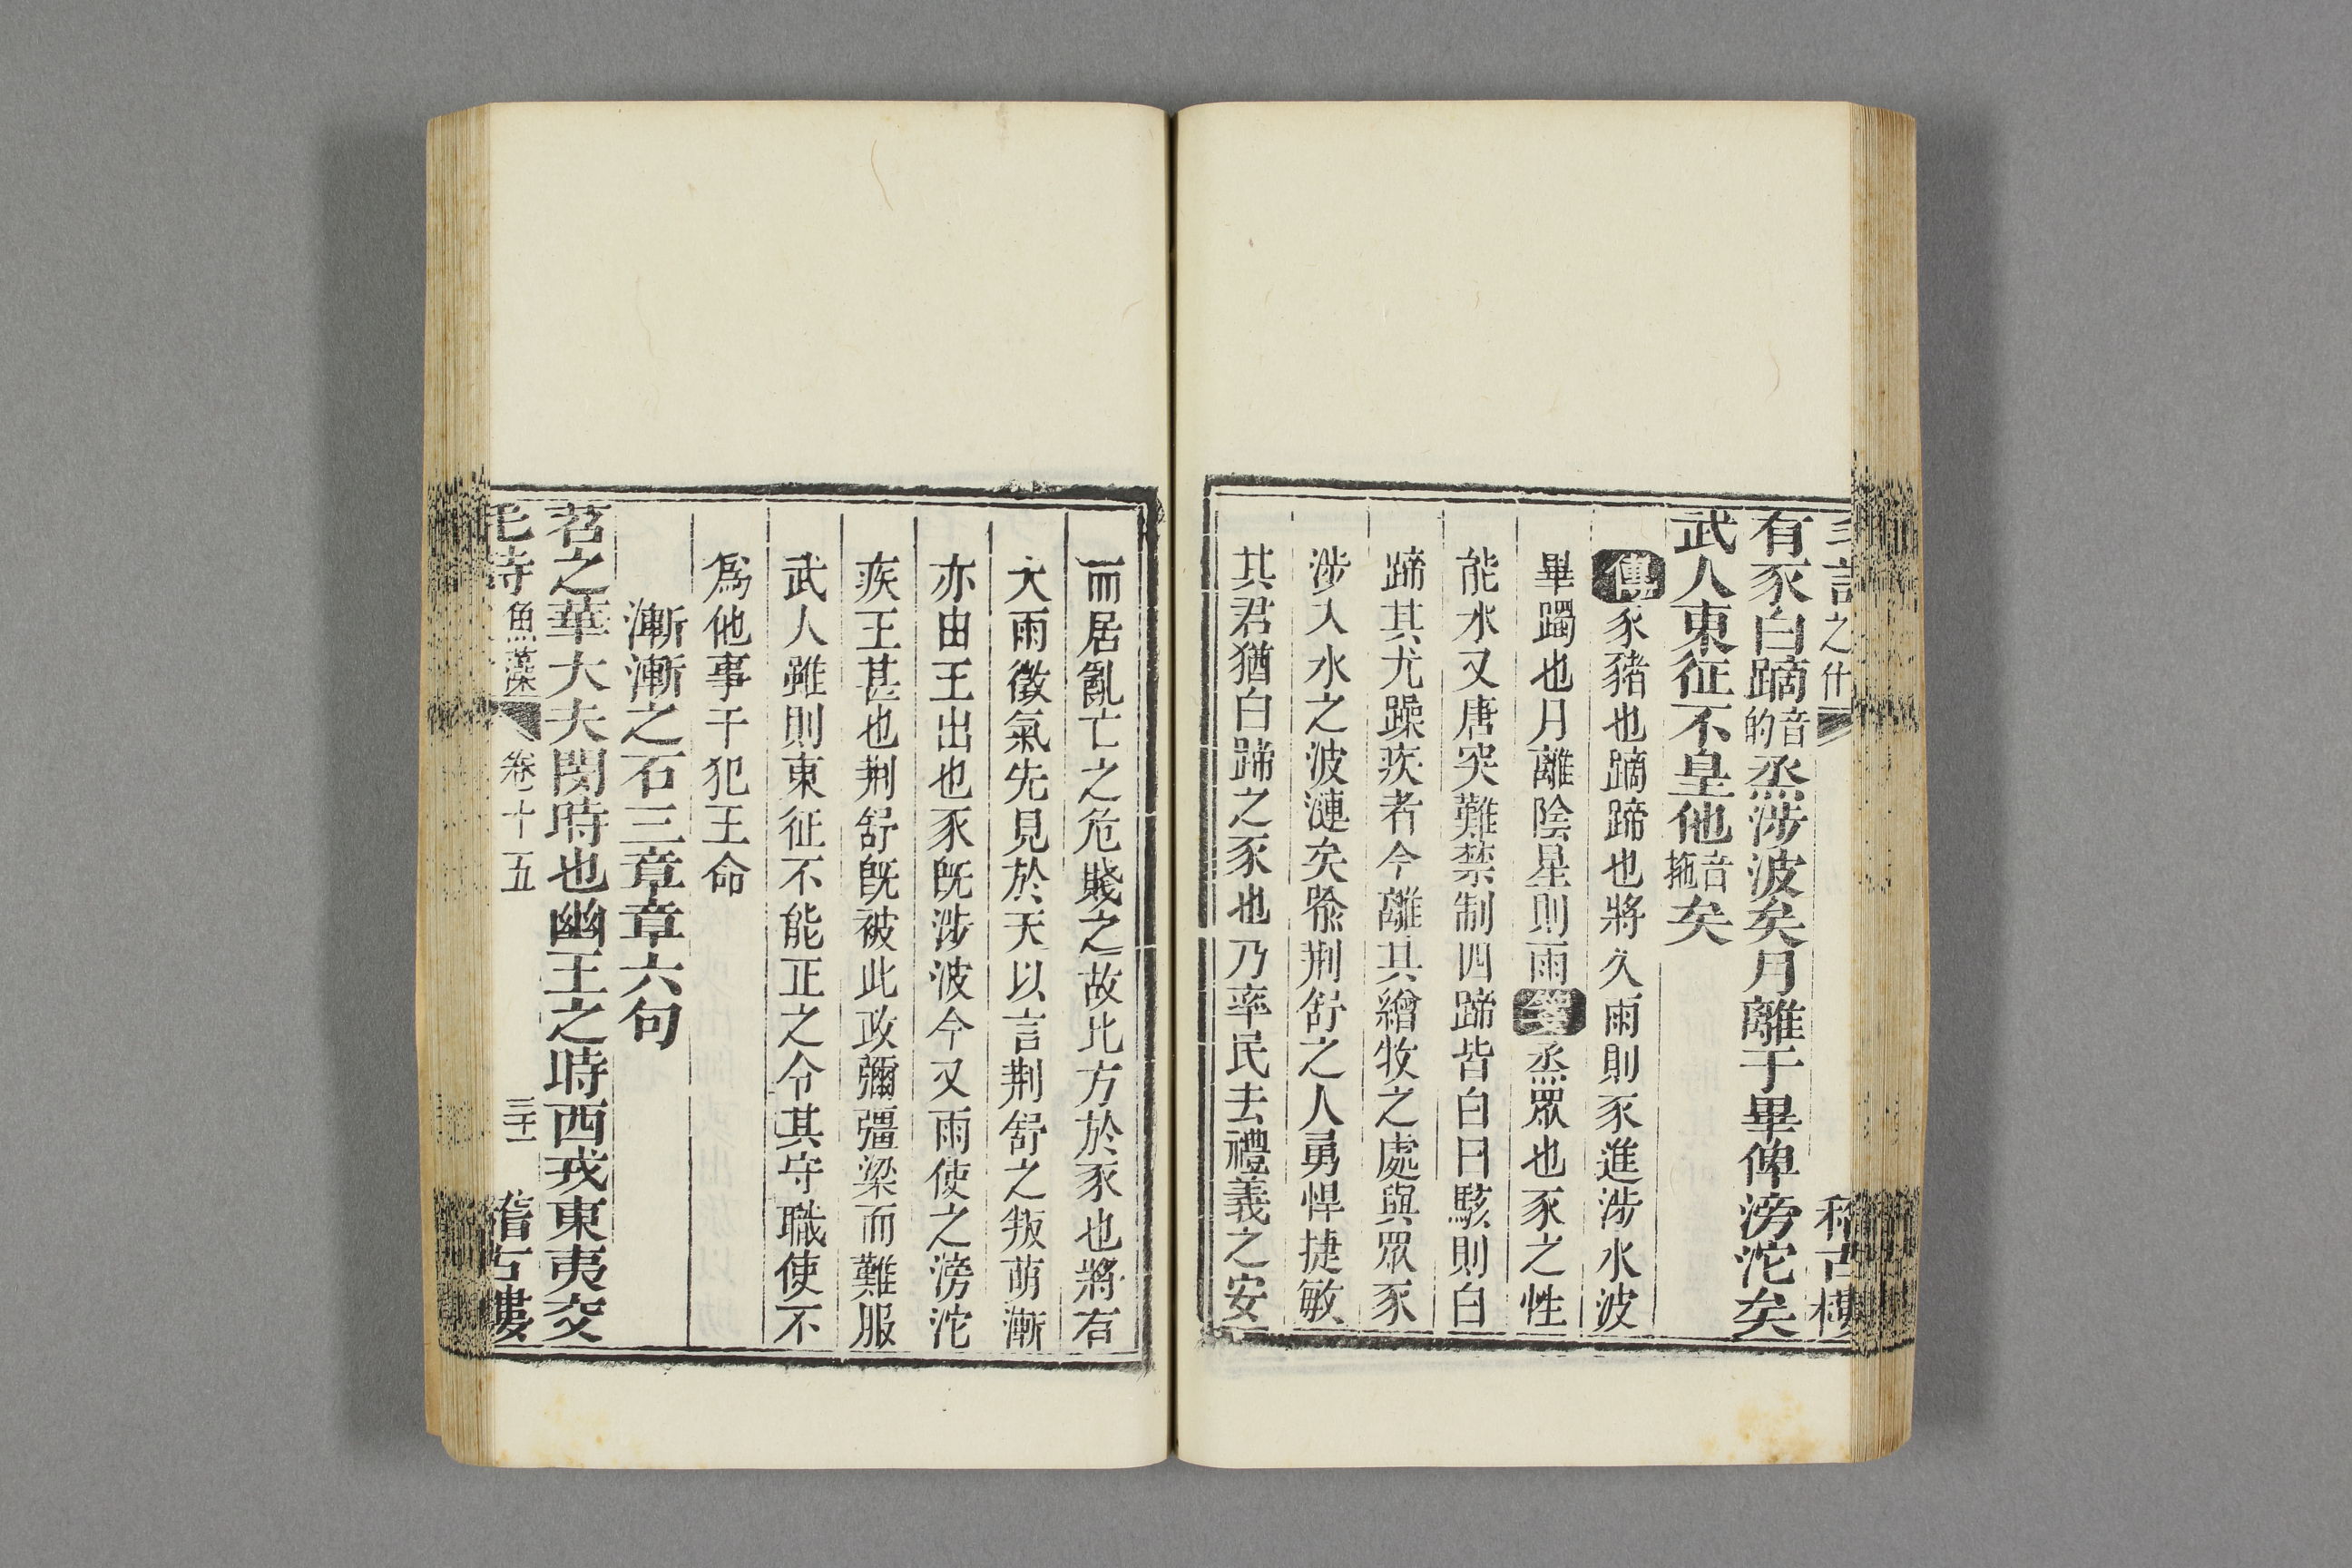 之什 稽古樓
有豕白蹢音的烝涉波矣月離于畢俾滂沱矣
武人東征不皇他音拖矣
傳豕豬也蹢蹄也將久雨則豕進涉水波
畢躅也月離陰星則雨箋烝眾也豕之性
能水又唐突難禁制四蹄皆白曰駭則白
蹄其尤躁疾者今離其繒牧之處與眾豕
涉入水之波漣矣喻荆舒之人勇悍捷敏
其君猶白蹄之豕也乃率民去禮義之安
而居亂亡之危賤之故比方於豕也將有
大雨徵氣先見於天以言荆舒之叛萌漸
亦由王出也豕既涉波今又雨使之滂沱
疾王甚也荆舒既被此政彌彊梁而難服
武人雖則東征不能正之令其守職使不
爲他事干犯王命
漸漸之石三章章六句
苕之華大夫閔時也幽王之時西戎東夷交
毛詩 魚藻 卷十五 三十一 稽古樓